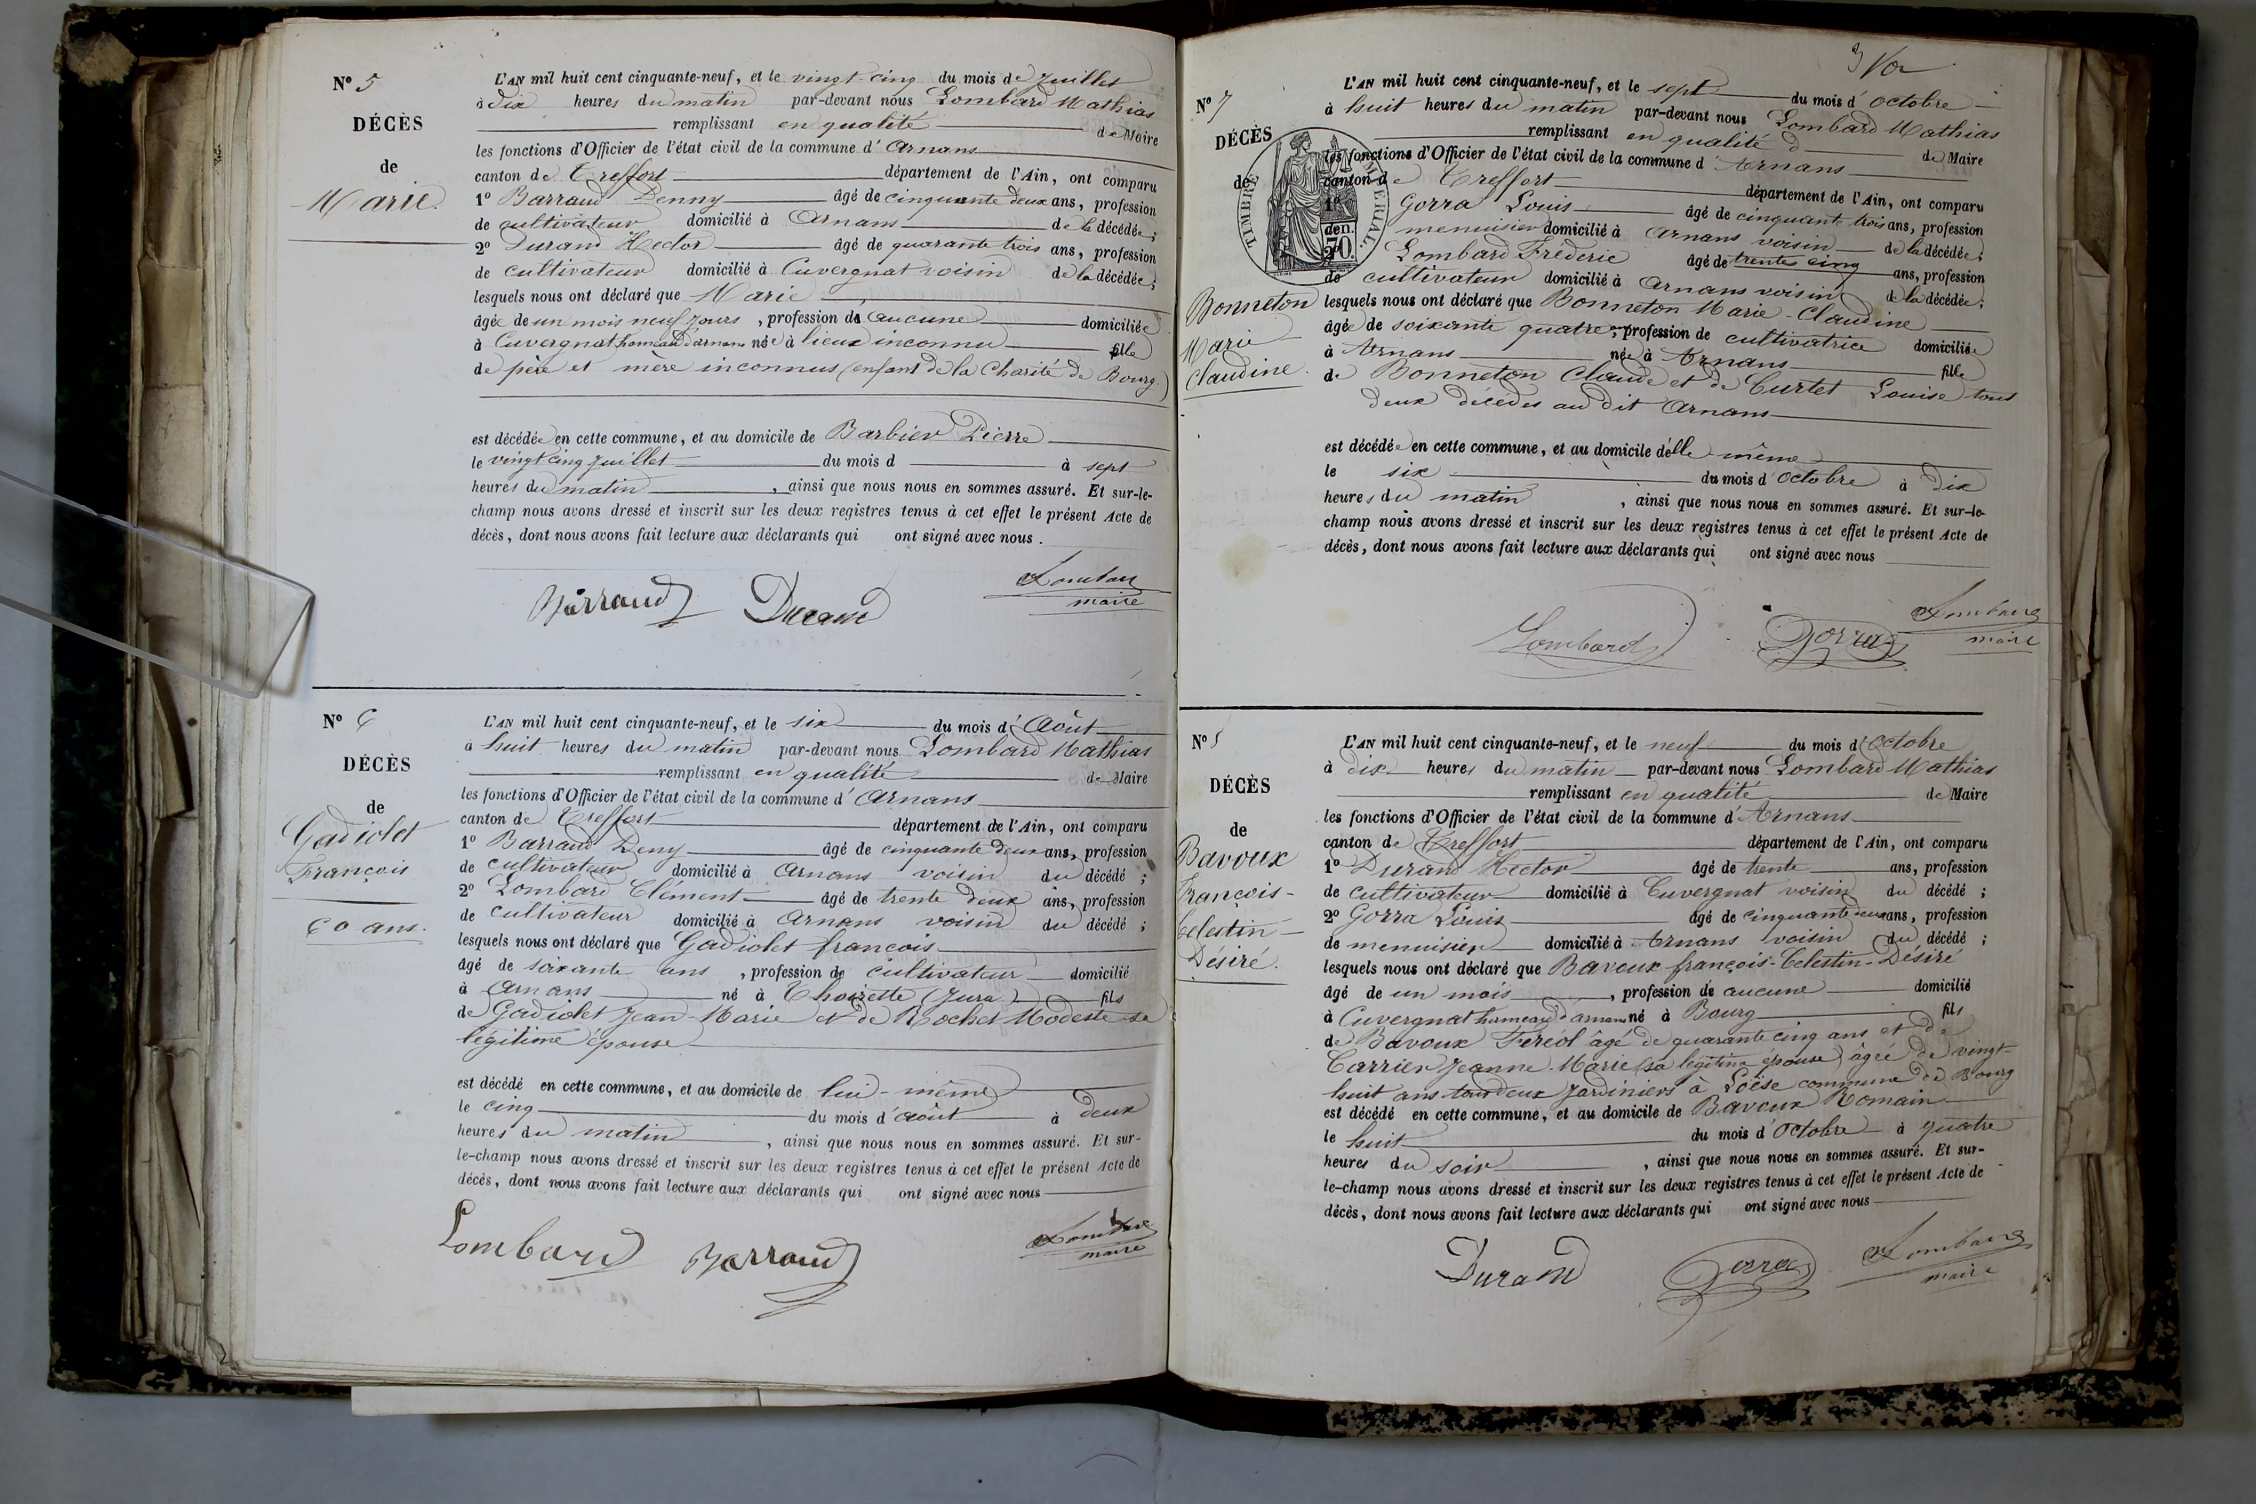 N° 5
DÉCÈS
de
Marie.
L'AN mil huit cent cinquante-neuf, et le vingt-cinq du mois de Juillet
à dix heures du matin par-devant nous Lombard Mathias
remplissant en qualité de Maire
les fonctions d'Officier de l'état civil de la commune d'Arnans
canton de Treffort département de l'Ain, ont comparu
1° Barraud Denny âgé de cinquante deux ans, profession
de cultivateur domicilié à Arnans de la décédée;
2° Durand Hector âgé de quarante trois ans, profession
de cultivateur domicilié à Cuvergnat voisin de la décédée;
lesquels nous ont déclaré que Marie
âgée de un mois neuf jours, profession de aucune domiciliée
à Cuvergnat hameau d'arnans née à lieux inconnu fille
de père et mère inconnus (enfant de la Charité de Bourg.)
est décédée en cette commune, et au domicile de Barbier Pierre
le vingt cinq juillet du mois d à sept
heures du matin, ainsi que nous nous en sommes assuré. Et sur-le-
champ nous avons dressé et inscrit sur les deux registres tenus à cet effet le présent Acte de
décès, dont nous avons fait lecture aux déclarants qui ont signé avec nous.
Barraud Durand Lombard
maire
N° 6
DÉCÈS
de
Gadiolet
François
60 ans.
L'AN mil huit cent cinquante-neuf, et le six du mois d'Août
à huit heures du matin par-devant nous Lombard Mathias
remplissant en qualité de Maire
les fonctions d'Officier de l'état civil de la commune d'Arnans
canton de Treffort département de l'Ain, ont comparu
1° Barraud Deny âgé de cinquante deux ans, profession
de cultivateur domicilié à Arnans voisin du décédé;
2° Lombard Clément âgé de trente deux ans, profession
de cultivateur domicilié à Arnans voisin du décédé;
lesquels nous ont déclaré que Gadiolet françois
âgé de soixante ans, profession de cultivateur domicilié
à Arnans né à Thoirette (Jura) fils
de Gadiolet Jean-Marie et de Rochet Modeste sa
légitime épouse
est décédé en cette commune, et au domicile de lui-même
le cinq du mois d'août à deux
heures du matin, ainsi que nous nous en sommes assuré. Et sur-
le-champ nous avons dressé et inscrit sur les deux registres tenus à cet effet le présent Acte de
décès, dont nous avons fait lecture aux déclarants qui ont signé avec nous
Lombard Barraud Lombard
maire
N° 7
DÉCÈS
de
Bonneton
Marie
Claudine.
TIMBRE IMPÉRIAL
den.
70.
L'AN mil huit cent cinquante-neuf, et le sept du mois d'octobre
à huit heures du matin par-devant nous Lombard Mathias
remplissant en qualité d de Maire
les fonctions d'Officier de l'état civil de la commune d'Arnans
canton de Treffort département de l'Ain, ont comparu
1° Gorra Louis âgé de cinquante trois ans, profession
menuisier domicilié à Arnans voisin de la décédée;
2° Lombard Frédéric âgé de trente cinq ans, profession
de cultivateur domicilié à Arnans voisin de la décédée;
lesquels nous ont déclaré que Bonneton Marie-Claudine
âgée de soixante quatre, profession de cultivatrice domiciliée
à Arnans née à Arnans fille
de Bonneton Claude et de Curtet Louise tous
deux décédés au dit Arnans
est décédée en cette commune, et au domicile d'elle même
le six du mois d'octobre à dix
heures du matin, ainsi que nous nous en sommes assuré. Et sur-le-
champ nous avons dressé et inscrit sur les deux registres tenus à cet effet le présent Acte de
décès, dont nous avons fait lecture aux déclarants qui ont signé avec nous
Lombard Gorra Lombard
maire
N° 8
DÉCÈS
de
Bavoux
François-
Celestin-
Désiré.
L'AN mil huit cent cinquante-neuf, et le neuf du mois d'Octobre
à dix heures du matin par-devant nous Lombard Mathias
remplissant en qualité de Maire
les fonctions d'Officier de l'état civil de la commune d'Arnans
canton de Treffort département de l'Ain, ont comparu
1° Durand Hector âgé de trente ans, profession
de cultivateur domicilié à Cuvergnat voisin du décédé;
2° Gorra Louis âgé de cinquante deux ans, profession
de menuisier domicilié à Arnans voisin du décédé;
lesquels nous ont déclaré que Bavoux françois-Celestin-Désiré
âgé de un mois, profession de aucune domicilié
à Cuvergnat hameau d'arnans né à Bourg fils
de Bavoux Feréol âgé de quarante cinq ans et de
Carrier Jeanne-Marie (sa légitime épouse) âgée de vingt-
huit ans tous deux Jardiniers à Loëse commune de Bourg
est décédé en cette commune, et au domicile de Bavoux Romain
le huit du mois d'octobre à quatre
heures du soir, ainsi que nous nous en sommes assuré. Et sur-
le-champ nous avons dressé et inscrit sur les deux registres tenus à cet effet le présent Acte de
décès, dont nous avons fait lecture aux déclarants qui ont signé avec nous
Durand Gorra Lombard
maire